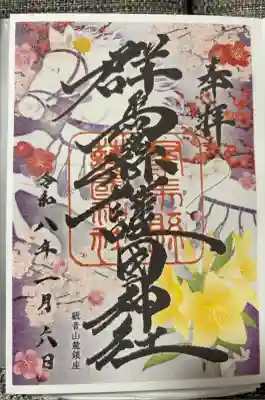 奉拝
群馬縣護國神社
令和八年一月六日
観音山麓鎮座